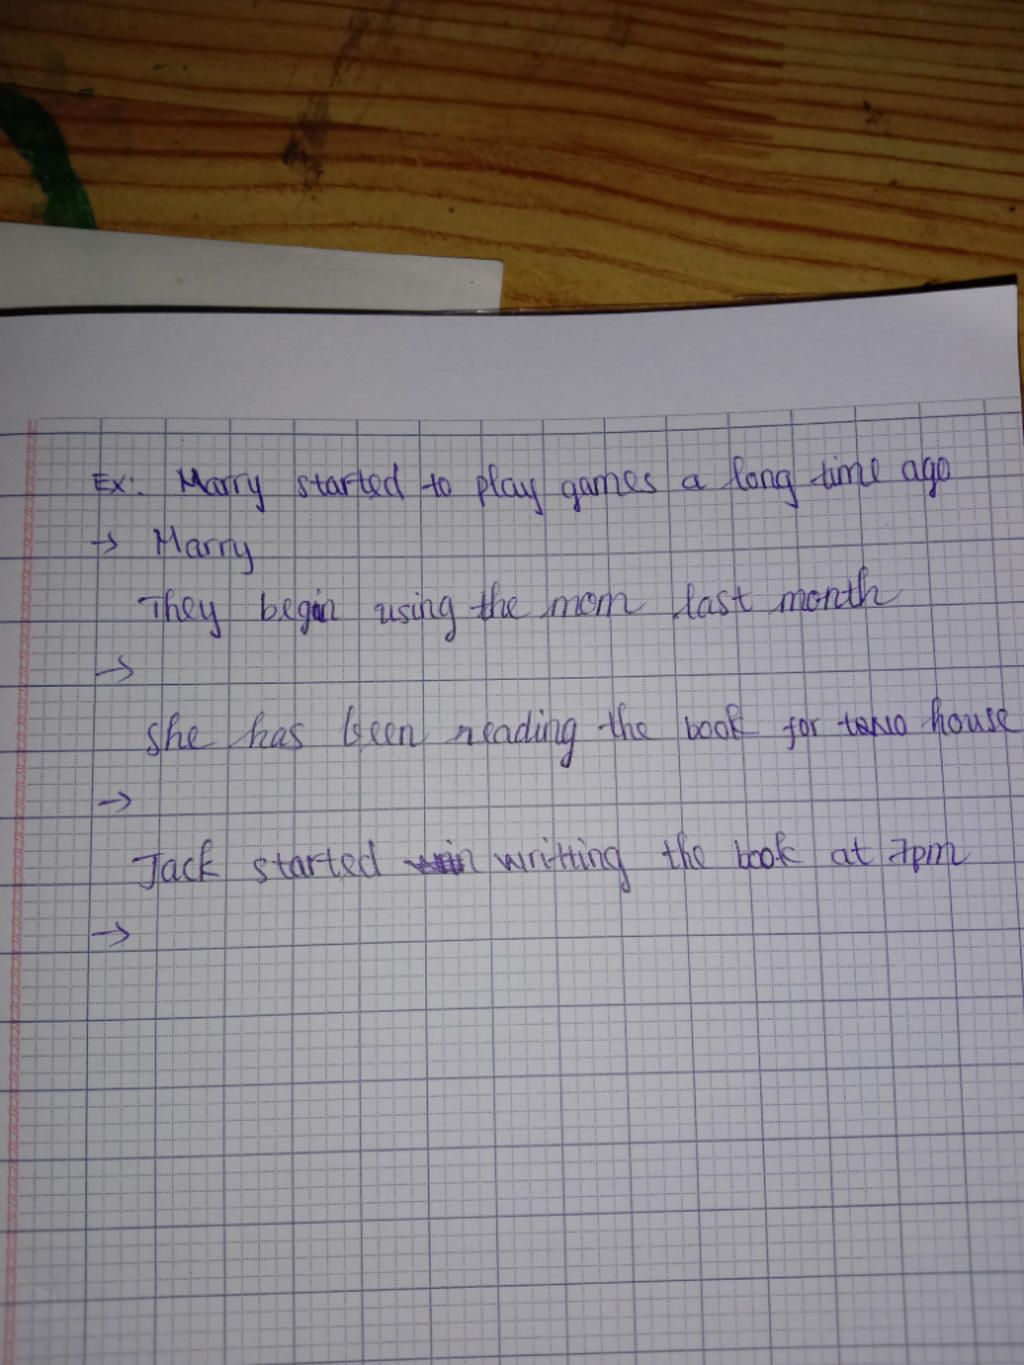 Ex: Marry started to play games a long time ago
→ Marry
They begin using the mom last month
→
She has been reading the book for two house
→
Jack started writting the book at 7pm
→